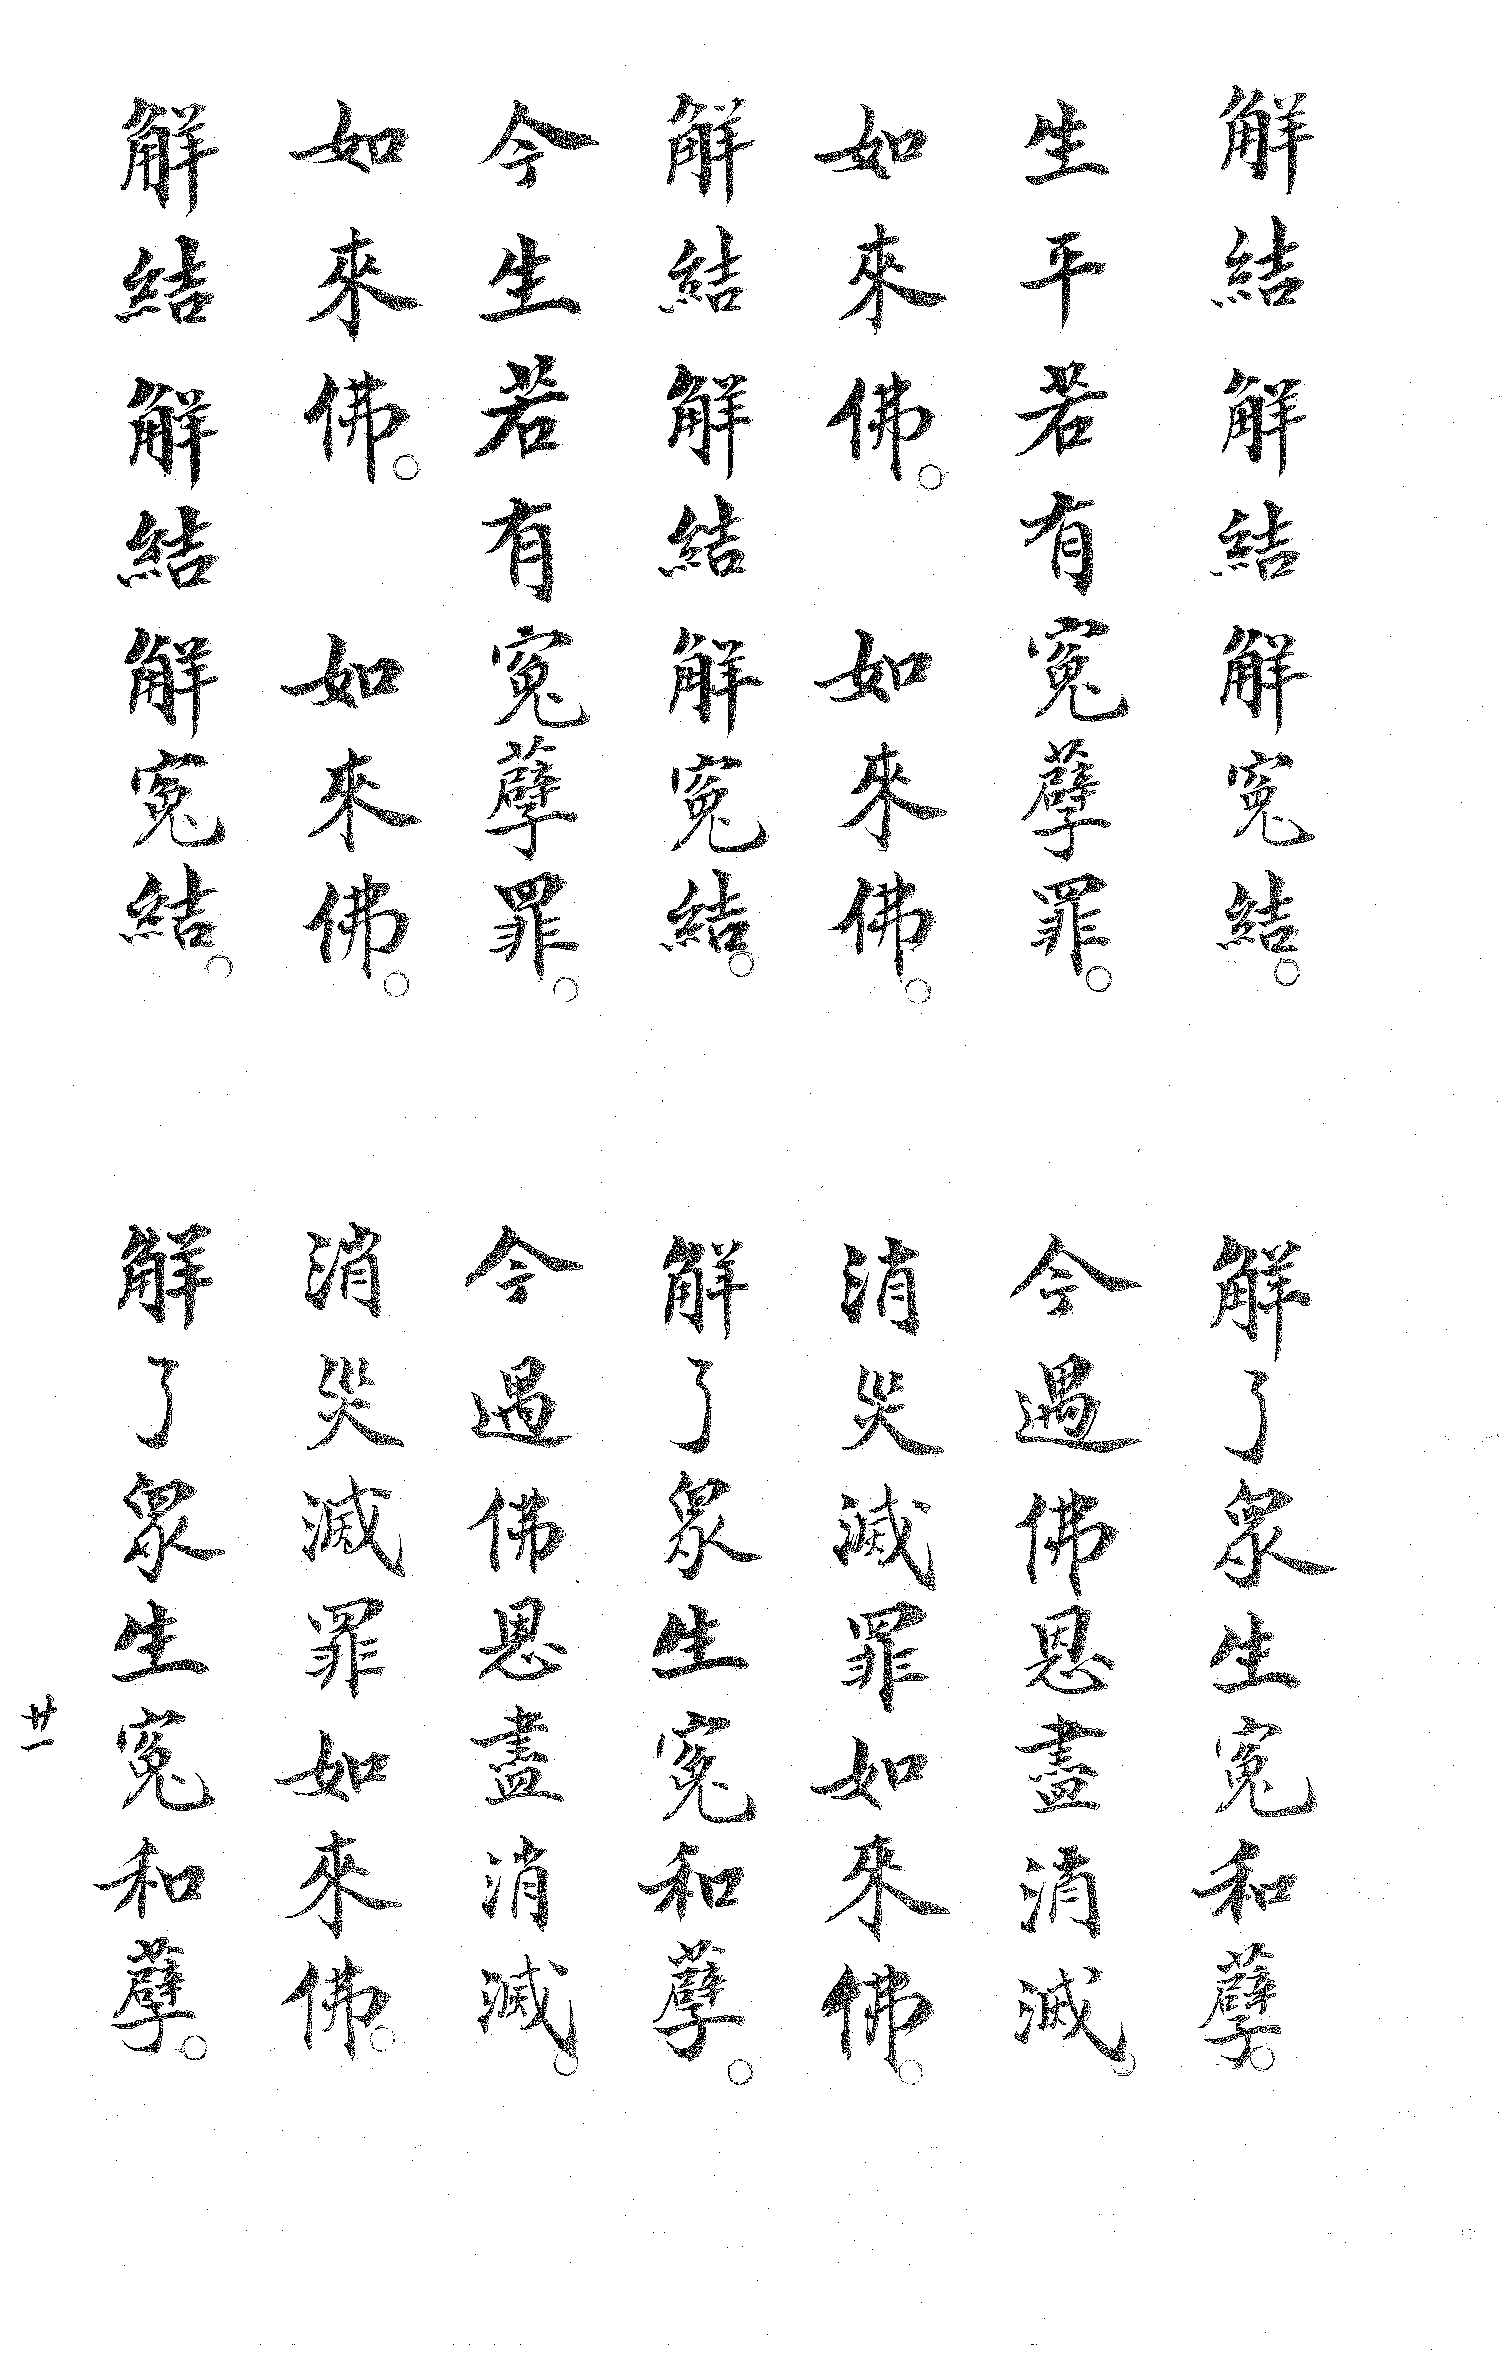 解結解結解冤結。 解了眾生冤和孽。
生平若有冤孽罪。 今遇佛恩盡消滅。
如來佛。 如來佛。 消災滅罪如來佛。
解結解結解冤結。 解了眾生冤和孽。
今生若有冤孽罪。 今遇佛恩盡消滅。
如來佛。 如來佛。 消災滅罪如來佛。
解結解結解冤結。 解了眾生冤和孽。
廿一